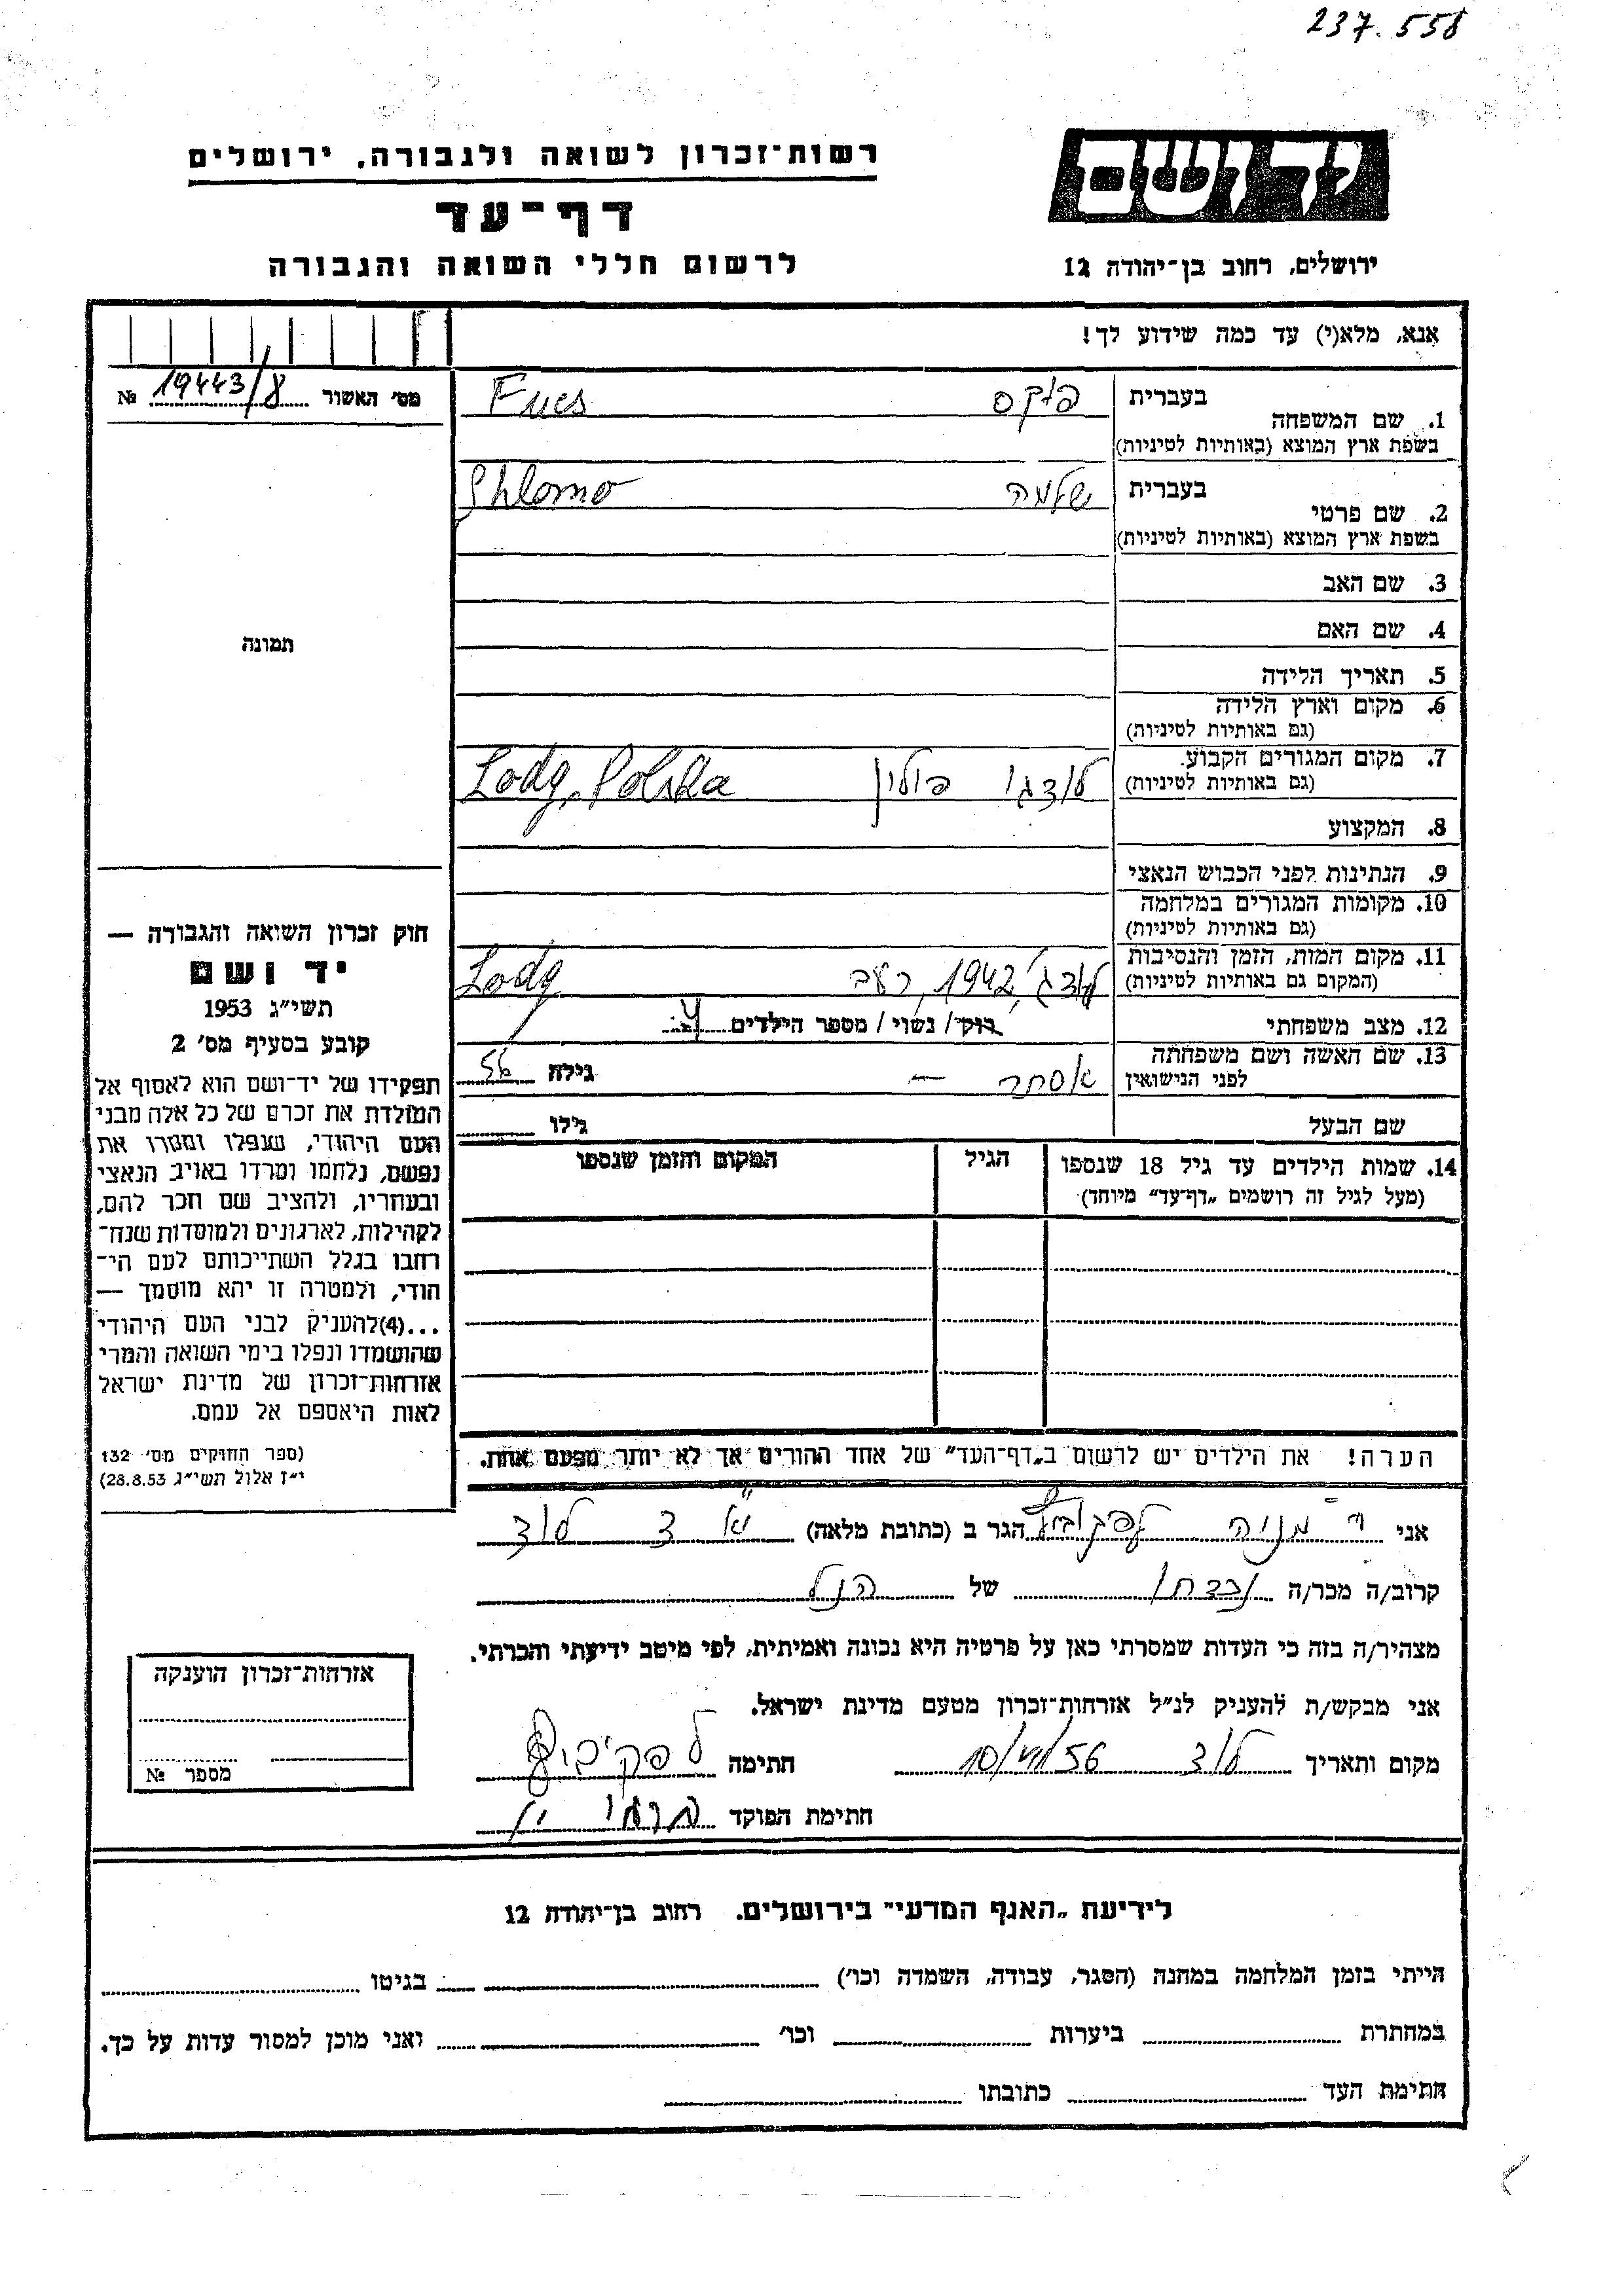 237.558
רשות־זכרון לשואה ולגבורה, ירושלים
יד ושם
דף־עד
לרשום חללי השואה והגבורה
ירושלים, רחוב בן־יהודה 12
אנא, מלא(י) עד כמה שידוע לך!
מס' האשור 19443/8 №
בעברית פוקס Fucs
1. שם המשפחה
בשפת ארץ המוצא (באותיות לטיניות)
בעברית שלמה Shlomo
2. שם פרטי
בשפת ארץ המוצא (באותיות לטיניות)
3. שם האב
4. שם האם
תמונה
5. תאריך הלידה
6. מקום וארץ הלידה
(גם באותיות לטיניות)
7. מקום המגורים הקבוע לודג' פולין Lodg, Polska
(גם באותיות לטיניות)
8. המקצוע
9. הנתינות לפני הכבוש הנאצי
10. מקומות המגורים במלחמה
(גם באותיות לטיניות)
11. מקום המות, הזמן והנסיבות לודג', 1942, רעב Lodg
(המקום גם באותיות לטיניות)
12. מצב משפחתי רוק/ נשוי/ מספר הילדים
13. שם האשה ושם משפחתה לפני הנישואין אסתר — גילה 56
שם הבעל גילו
14. שמות הילדים עד גיל 18 שנספו הגיל המקום והזמן שנספו
(מעל לגיל זה רושמים „דף־עד" מיוחד)
הערה! את הילדים יש לרשום ב„דף־העד" של אחד ההורים אך לא יותר מפעם אחת.
חוק זכרון השואה והגבורה —
יד ושם
תשי"ג 1953
קובע בסעיף מס' 2
תפקידו של יד־ושם הוא לאסוף אל
המולדת את זכרם של כל אלה מבני
העם היהודי, שנפלו ומסרו את
נפשם, נלחמו ומרדו באויב הנאצי
ובעוזריו, ולהציב שם וזכר להם,
לקהילות, לארגונים ולמוסדות שנח־
רבו בגלל השתייכותם לעם הי־
הודי, ולמטרה זו יהא מוסמך —
...(4)להעניק לבני העם היהודי
שהושמדו ונפלו בימי השואה והמרי
אזרחות־זכרון של מדינת ישראל
לאות היאספם אל עמם.
(ספר החוקים מס' 132
י"ז אלול תשי"ג 28.8.53)
אני מניה הגר ב (כתובת מלאה) לוד
קרוב/ה מכר/ה נכדתו של הנ"ל
מצהיר/ה בזה כי העדות שמסרתי כאן על פרטיה היא נכונה ואמיתית, לפי מיטב ידיעתי והכרתי.
אני מבקש/ת להעניק לנ"ל אזרחות־זכרון מטעם מדינת ישראל.
מקום ותאריך לוד 10/VI/56 חתימה
חתימת הפוקד
אזרחות־זכרון הוענקה
מספר №
לידיעת „האגף המדעי" בירושלים. רחוב בן־יהודה 12
הייתי בזמן המלחמה במחנה (הסגר, עבודה, השמדה וכו') בגיטו
במחתרת ביערות וכו' ואני מוכן למסור עדות על כך.
חתימת העד כתובתו